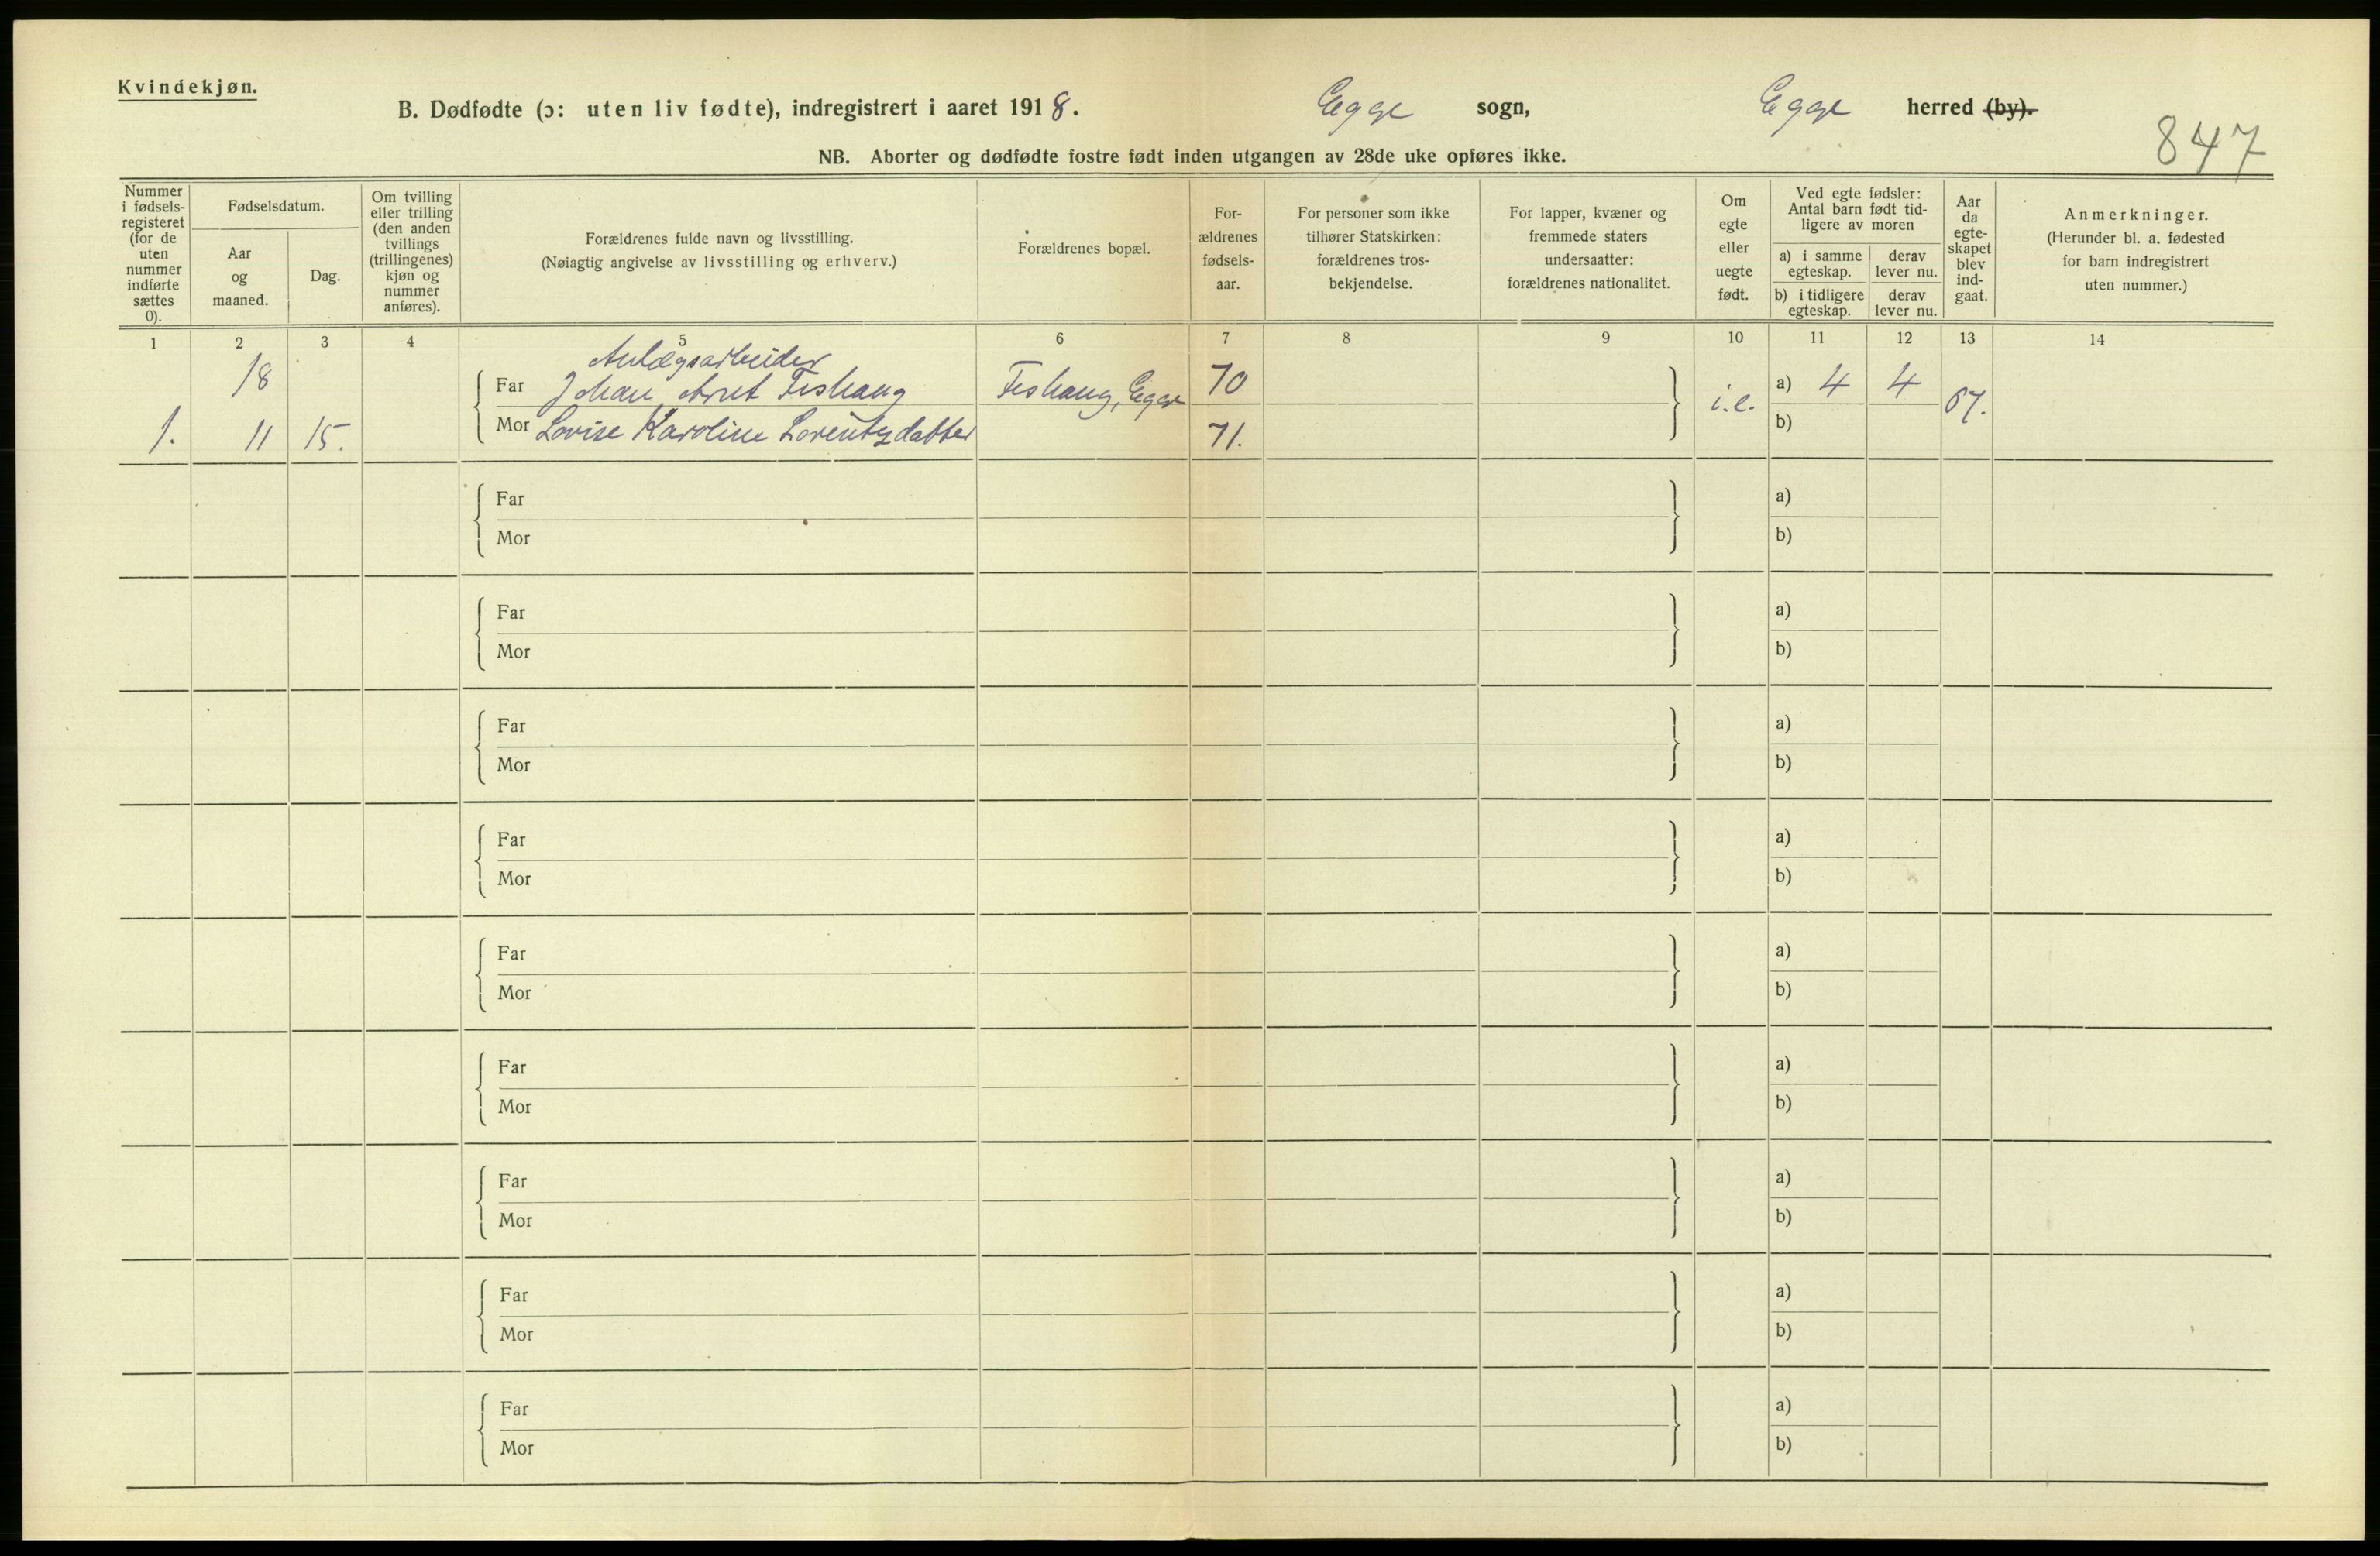 Kvindekjøn.
B. Dødfødte (ɔ: uten liv fødte), indregistrert i aaret 1918. Egge sogn, Egge herred (by).
847
NB. Aborter og dødfødte fostre født inden utgangen av 28de uke opføres ikke.
Nummer
i fødsels-
registeret
(for de
uten
nummer
indførte
sættes
0).
Fødselsdatum.
Aar
og
maaned.
Dag.
Om tvilling
eller trilling
(den anden
tvillings
(trillingenes)
kjøn og
nummer
anføres).
Forældrenes fulde navn og livsstilling.
(Nøiagtig angivelse av livsstilling og erhverv.)
Forældrenes bopæl.
For-
ældrenes
fødsels-
aar.
For personer som ikke
tilhører Statskirken:
forældrenes tros-
bekjendelse.
For lapper, kvæner og
fremmede staters
undersaatter:
forældrenes nationalitet.
Om
egte
eller
uegte
født.
Ved egte fødsler:
Antal barn født tid-
ligere av moren
a) i samme
egteskap.
derav
lever nu.
b) i tidligere
egteskap.
derav
lever nu.
Aar
da
egte-
skapet
blev
ind-
gaat.
Anmerkninger.
(Herunder bl. a. fødested
for barn indregistrert
uten nummer.)
1 2 3 4 5 6 7 8 9 10 11 12 13 14
Anlægsarbeider
18 Far Johan Arnt 70 a) 4 4
Egge i.e. 07.
1. 11 15. Mor Lovise Karoline Lorentzdatter 71. b)
Far a)
Mor b)
Far a)
Mor b)
Far a)
Mor b)
Far a)
Mor b)
Far a)
Mor b)
Far a)
Mor b)
Far a)
Mor b)
Far a)
Mor b)
Far a)
Mor b)